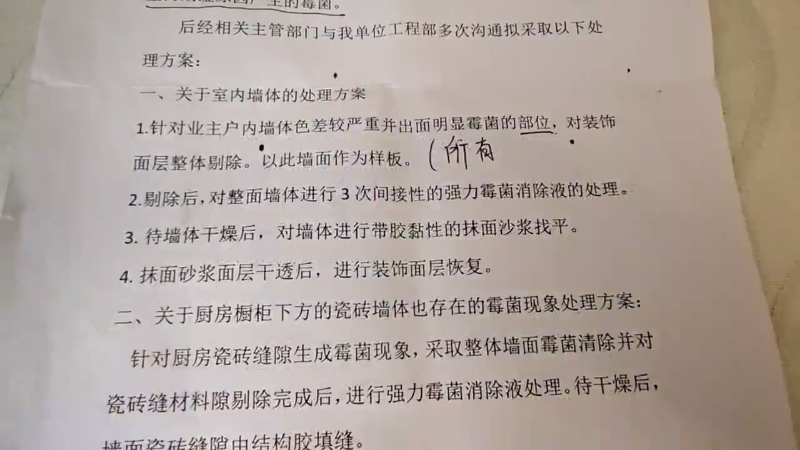 产生的霉菌。
后经相关主管部门与我单位工程部多次沟通拟采取以下处
理方案：
一、关于室内墙体的处理方案
1.针对业主户内墙体色差较严重并出面明显霉菌的部位，对装饰
面层整体剔除。以此墙面作为样板。（所有
2.剔除后，对整面墙体进行 3 次间接性的强力霉菌消除液的处理。
3. 待墙体干燥后，对墙体进行带胶黏性的抹面沙浆找平。
4. 抹面砂浆面层干透后，进行装饰面层恢复。
二、关于厨房橱柜下方的瓷砖墙体也存在的霉菌现象处理方案：
针对厨房瓷砖缝隙生成霉菌现象，采取整体墙面霉菌清除并对
瓷砖缝材料隙剔除完成后，进行强力霉菌消除液处理。待干燥后，
墙面瓷砖缝隙由结构胶填缝。